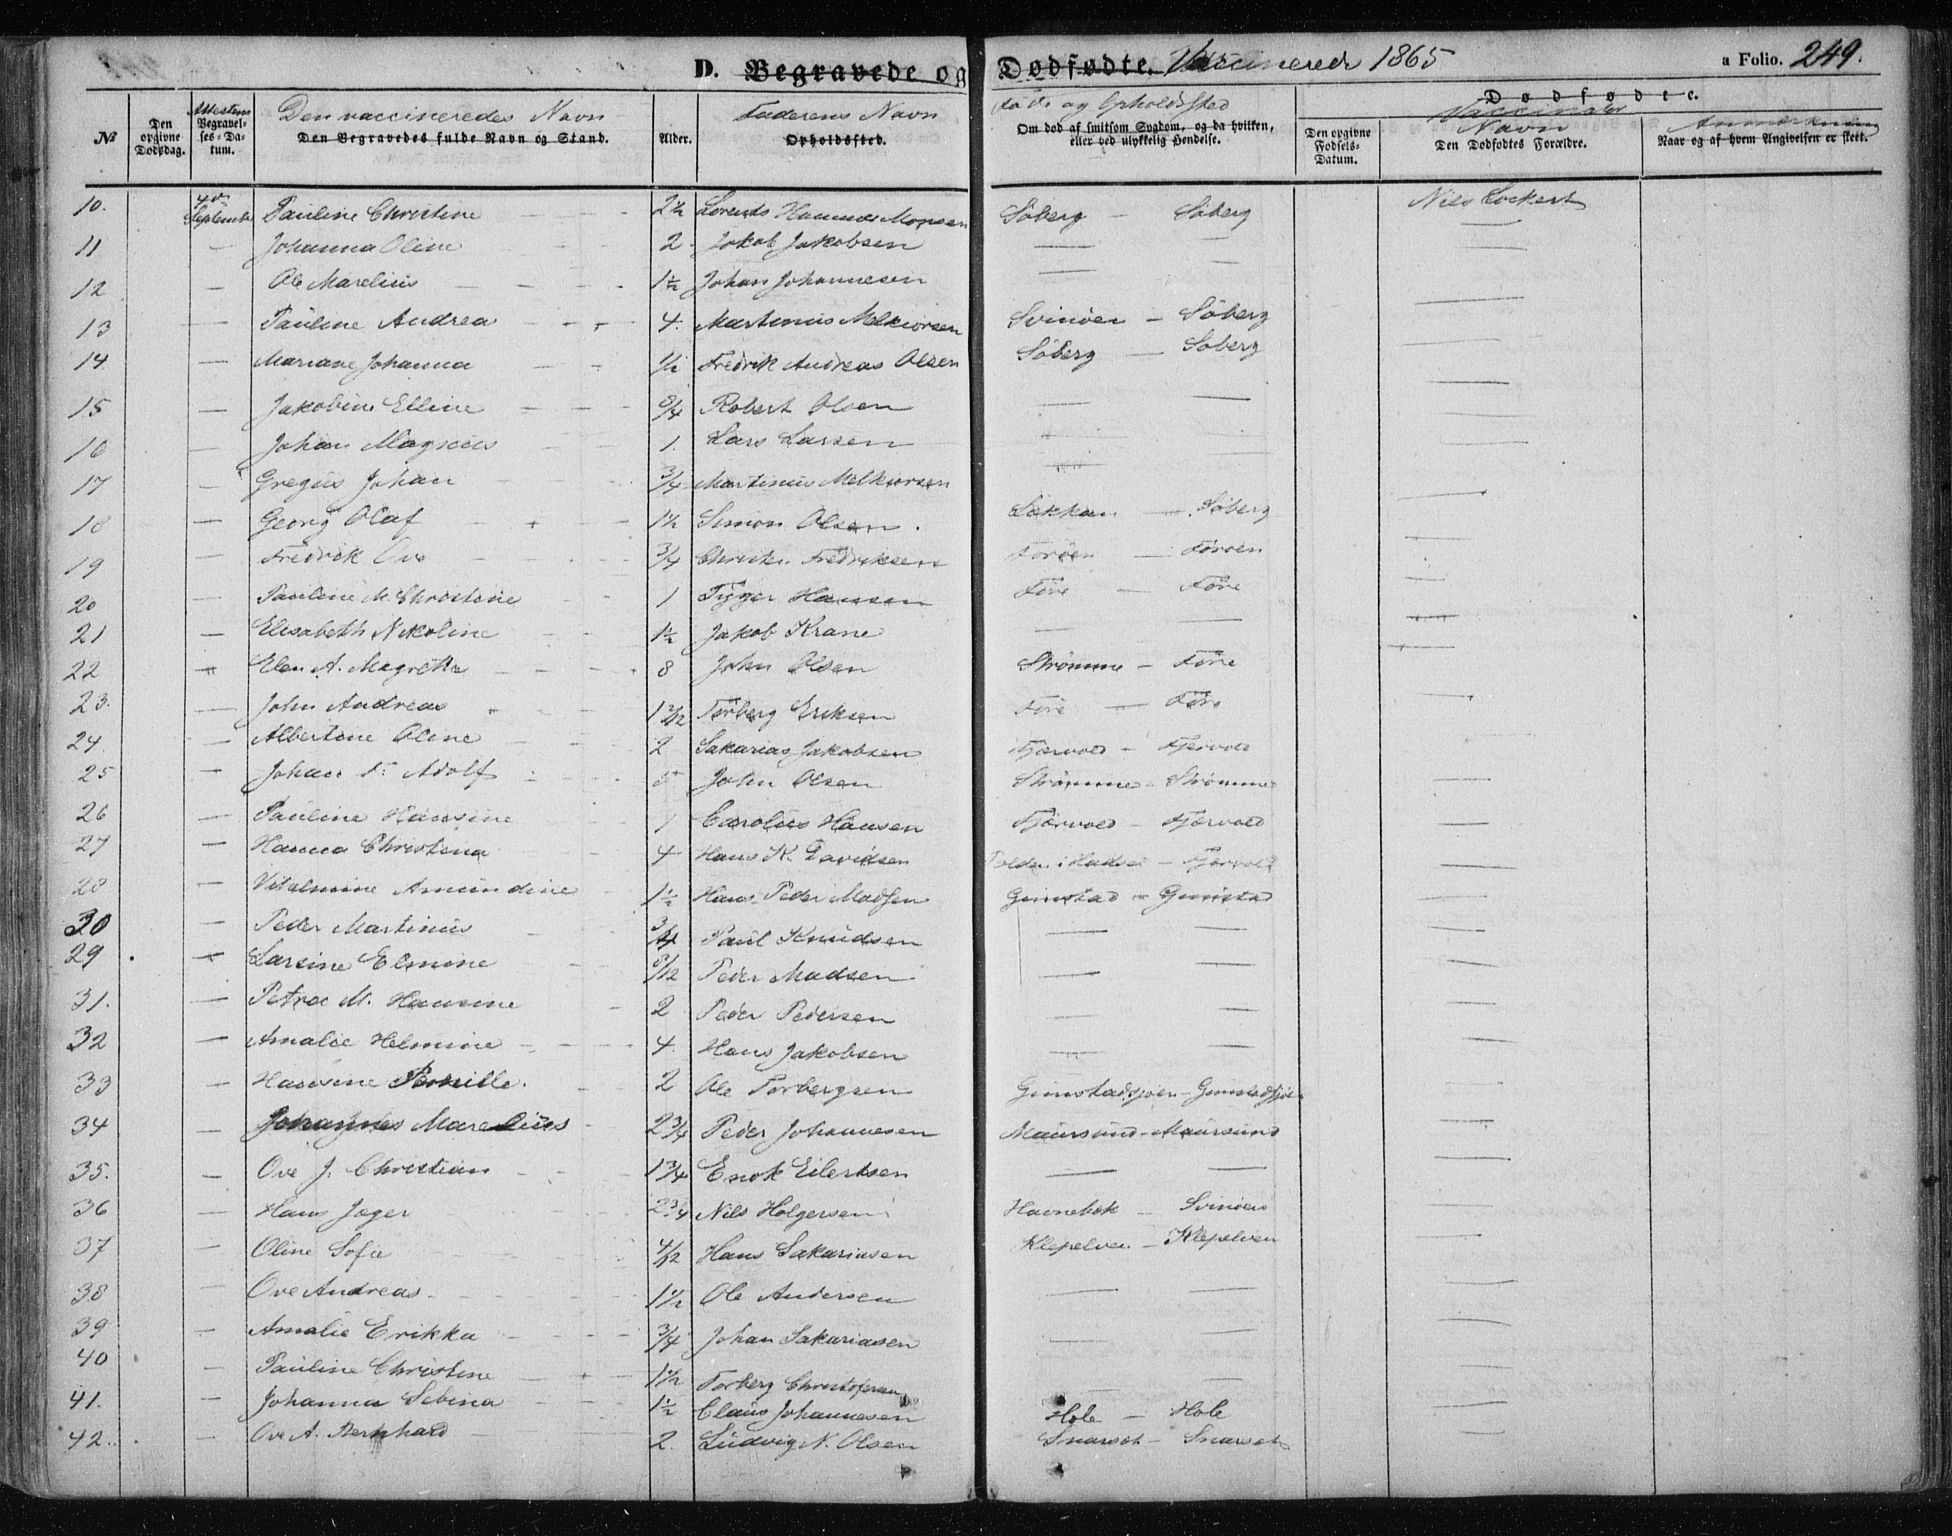 D. Begravede og Dödfödte. Vaccinerede 1865 a Folio. 249.
№ Den opgivne Dödsdag. Attestens Begravelses-Datum. Den vaccineredes Navn Den Begravedes fulde Navn og Stand. Alder. Faderens Navn Opholdssted. Föde og Opholdssted Om död af smitsom Sygdom, og da hvilken, eller ved ulykkelig Hendelse. Den opgivne Födsels-Datum. Dödfödte. Vaccinatør Navn Den Dödfödtes Forældre. Anmærkning Naar og af hvem Angivelsen er skeet.
10. 4de September Pauline Christine 2½ Lorents Hannes Monsen Söberg — Söberg Nils Lockert
11 — Johanna Oline 2 Jakob Jakobsen — — —
12 — Ole Marelius 1½ Johan Johannesen — — —
13 — Pauline Andrea 4. Martinus Melkiorsen Svinöen — Söberg —
14 — Mariane Johanna ½ Fredrik Andreas Olsen Söberg — Söberg —
15 — Jakobine Elline ¾ Robert Olsen — — —
16 — Johan Magnus 1. Lars Larsen — — —
17 — Gregus Johan ¾ Martinus Melkiorsen — — —
18 — Georg Olaf 1½ Simon Olsen Sökkan — Söberg —
19 — Fredrik Ove ¾ Christen Fredriksen Foröen — Foröen —
20 — Pauline M. Christine 1 Tyger Hansen Före — Före —
21 — Elisabeth Nikoline 1½ Jakob Krane — — —
22 — Elen A. Magrethe 8 John Olsen Strömme — Före —
23. — John Andreas 1 3/12 Torberg Eriksen Före — Före —
24. — Albertine Oline 2 Sakarias Jakobsen Fjærvold — Fjærvold —
25 — Johan Fr Adolf 5 John Olsen Strömme — Strömme —
26 — Pauline Hansine 1 Carolius Hansen Fjærvold — Fjærvold —
27 — Hanna Christina 4 Hans K. Davidsen i Hadsel — Fjærvold —
28 — Vilelmine Amundine 1½ Hans Peder Madsen Gunstad — Gunstad —
30 — Peder Martinus ¾ Paul Knudsen — — —
29 — Larsine Elmine 8/12 Peder Madsen — — —
31. — Petra M. Hansine 2 Peder Pedersen — — —
32 — Amalie Helmine 4. Hans Jakobsen — — —
33 — Hansine Pernille. 2 Ole Torbergsen Gunstadsjöen — Gunstadsjöen —
34 — Johannes Marelius 2¾ Peder Johannesen Maursund — Maursund —
35. — Ove J. Christian 1¾ Enok Eilertsen — — —
36 — Hans Jager 2¾ Nils Holgersen Havnebak — Svinöen —
37 — Oline Sofie 4/12 Hans Sakariasen Klepelven — Klepelven —
38 — Ove Andreas 1½ Ole Andersen — — —
39 — Amalie Erikka ¾ Johan Sakariasen — — —
40 — Pauline Christine 1½ Torberg Christofersen — — —
41. — Johanna Sebina 1½ Claus Johannesen Hole — Hole —
42. — Ove A. Bernhard 2. Ludvig N. Olsen Snarset — Snarset —